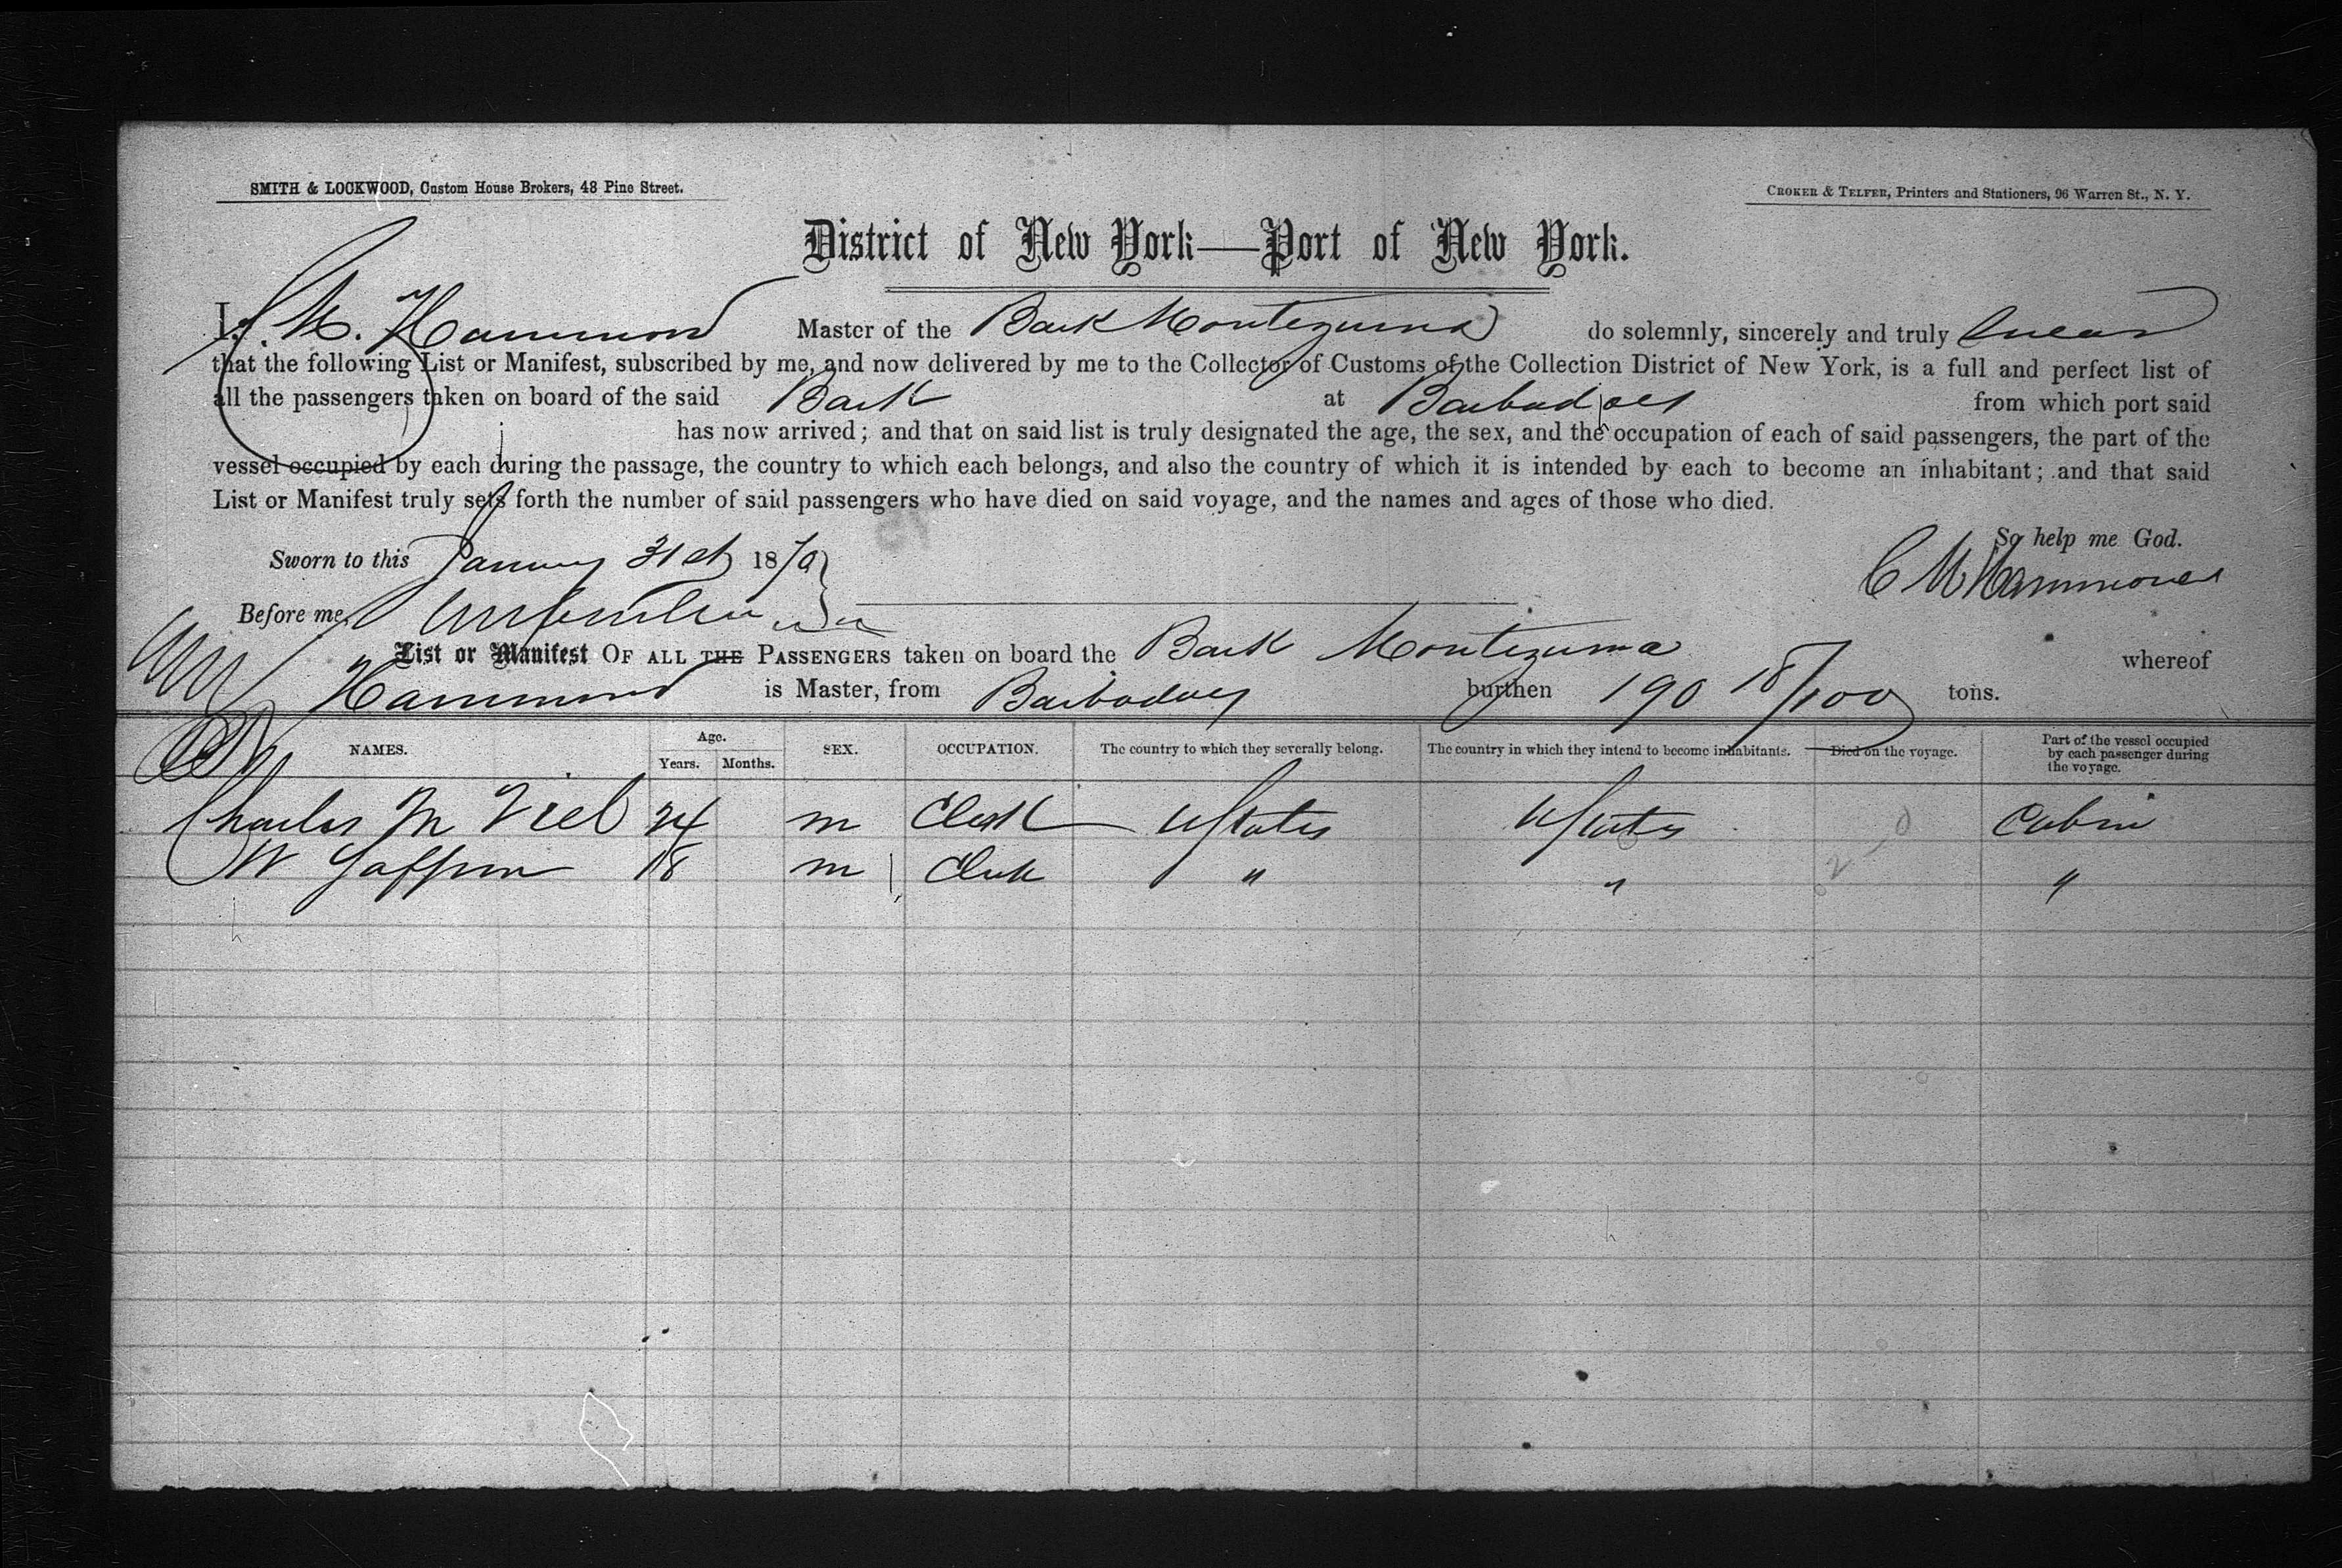 SMITH & LOCKWOOD, Custom House Brokers, 48 Pine Street.
CROKER & TELFER, Printers and Stationers, 96 Warren St., N. Y.
District of New York—Port of New York.
I, C. M. Hammond Master of the Bark Montezuma do solemnly, sincerely and truly swear
that the following List or Manifest, subscribed by me, and now delivered by me to the Collector of Customs of the Collection District of New York, is a full and perfect list of
all the passengers taken on board of the said Bark at Barbadoes from which port said
has now arrived; and that on said list is truly designated the age, the sex, and the occupation of each of said passengers, the part of the
vessel occupied by each during the passage, the country to which each belongs, and also the country of which it is intended by each to become an inhabitant; and that said
List or Manifest truly sets forth the number of said passengers who have died on said voyage, and the names and ages of those who died.
So help me God.
Sworn to this January 31st 1870
C M Hammond
Before me
List or Manifest OF ALL THE PASSENGERS taken on board the Bark Montezuma whereof
Hammond is Master, from Barbadoes burthen 190 18/100 tons.
NAMES. Age. Years. Months. SEX. OCCUPATION. The country to which they severally belong. The country in which they intend to become inhabitants. Died on the voyage. Part of the vessel occupied by each passenger during the voyage.
Charles M Viel 24 m Clerk U States U States 0 Cabin
W 18 m Clerk " " "